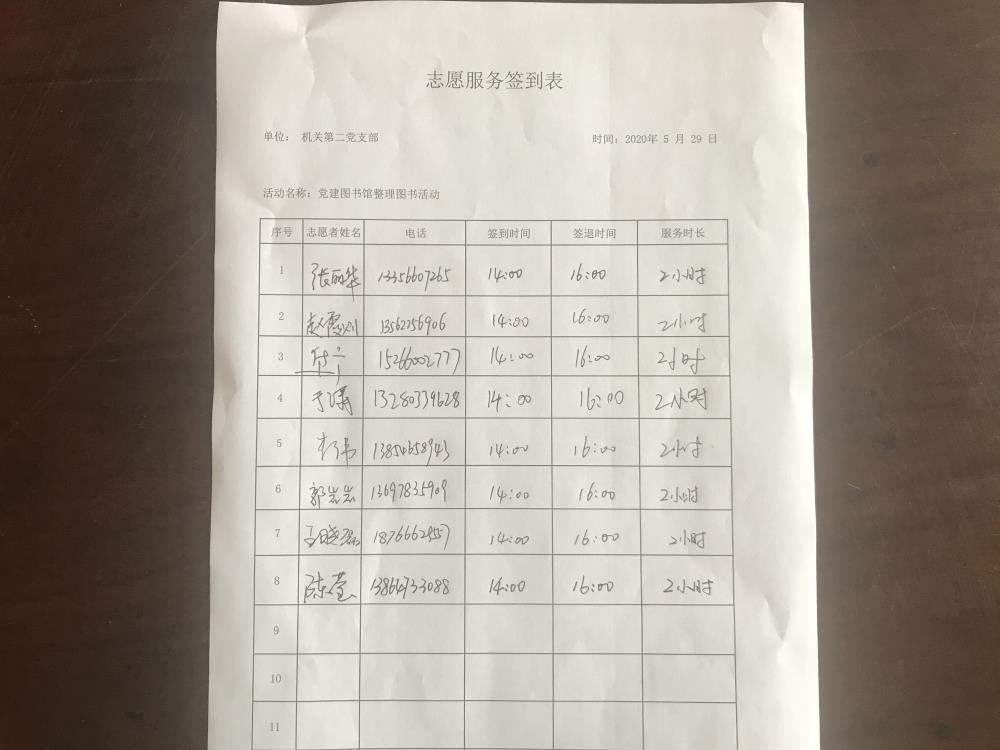 志愿服务签到表
单位： 机关第二党支部 时间：2020年 5 月 29 日
活动名称：党建图书馆整理图书活动
序号 志愿者姓名 电话 签到时间 签退时间 服务时长
1 张丽华 13356607265 14:00 16:00 2小时
2 13562256906 14:00 16:00 2小时
3 15266002777 14:00 16:00 2小时
4 于涛 13280339628 14:00 16:00 2小时
5 14:00 16:00 2小时
6 郭岩岩 13697835909 14:00 16:00 2小时
7 王晓磊 14:00 16:00 2小时
8 陈莹 13864733088 14:00 16:00 2小时
9
10
11